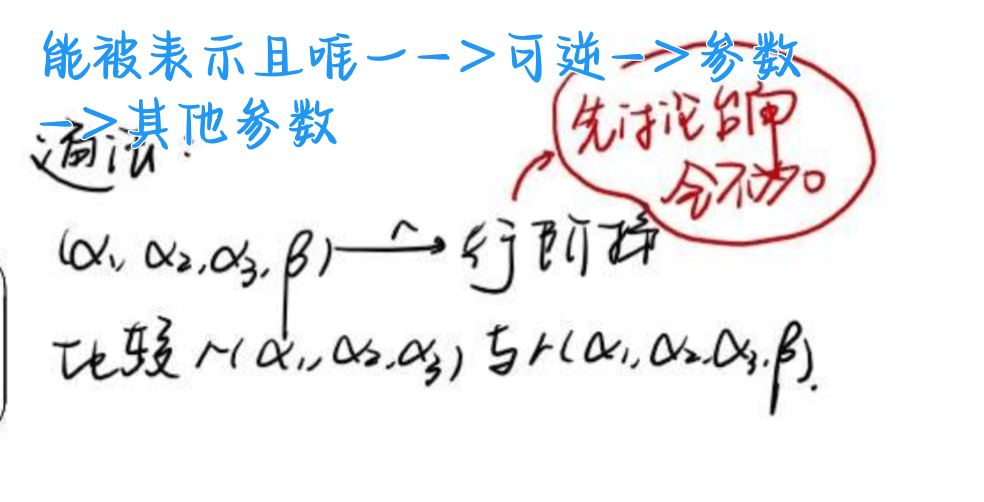 能被表示且唯一—>可逆—>参数
—>其他参数
通法:
先讨论台角
会不为0
(α₁, α₂,α₃, β) —r→ 行阶梯
比较 r(α₁,α₂,α₃) 与 r(α₁,α₂,α₃,β).